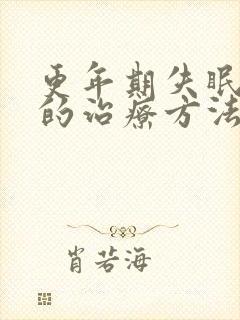 更年期失眠
的治疗方法
肖若海